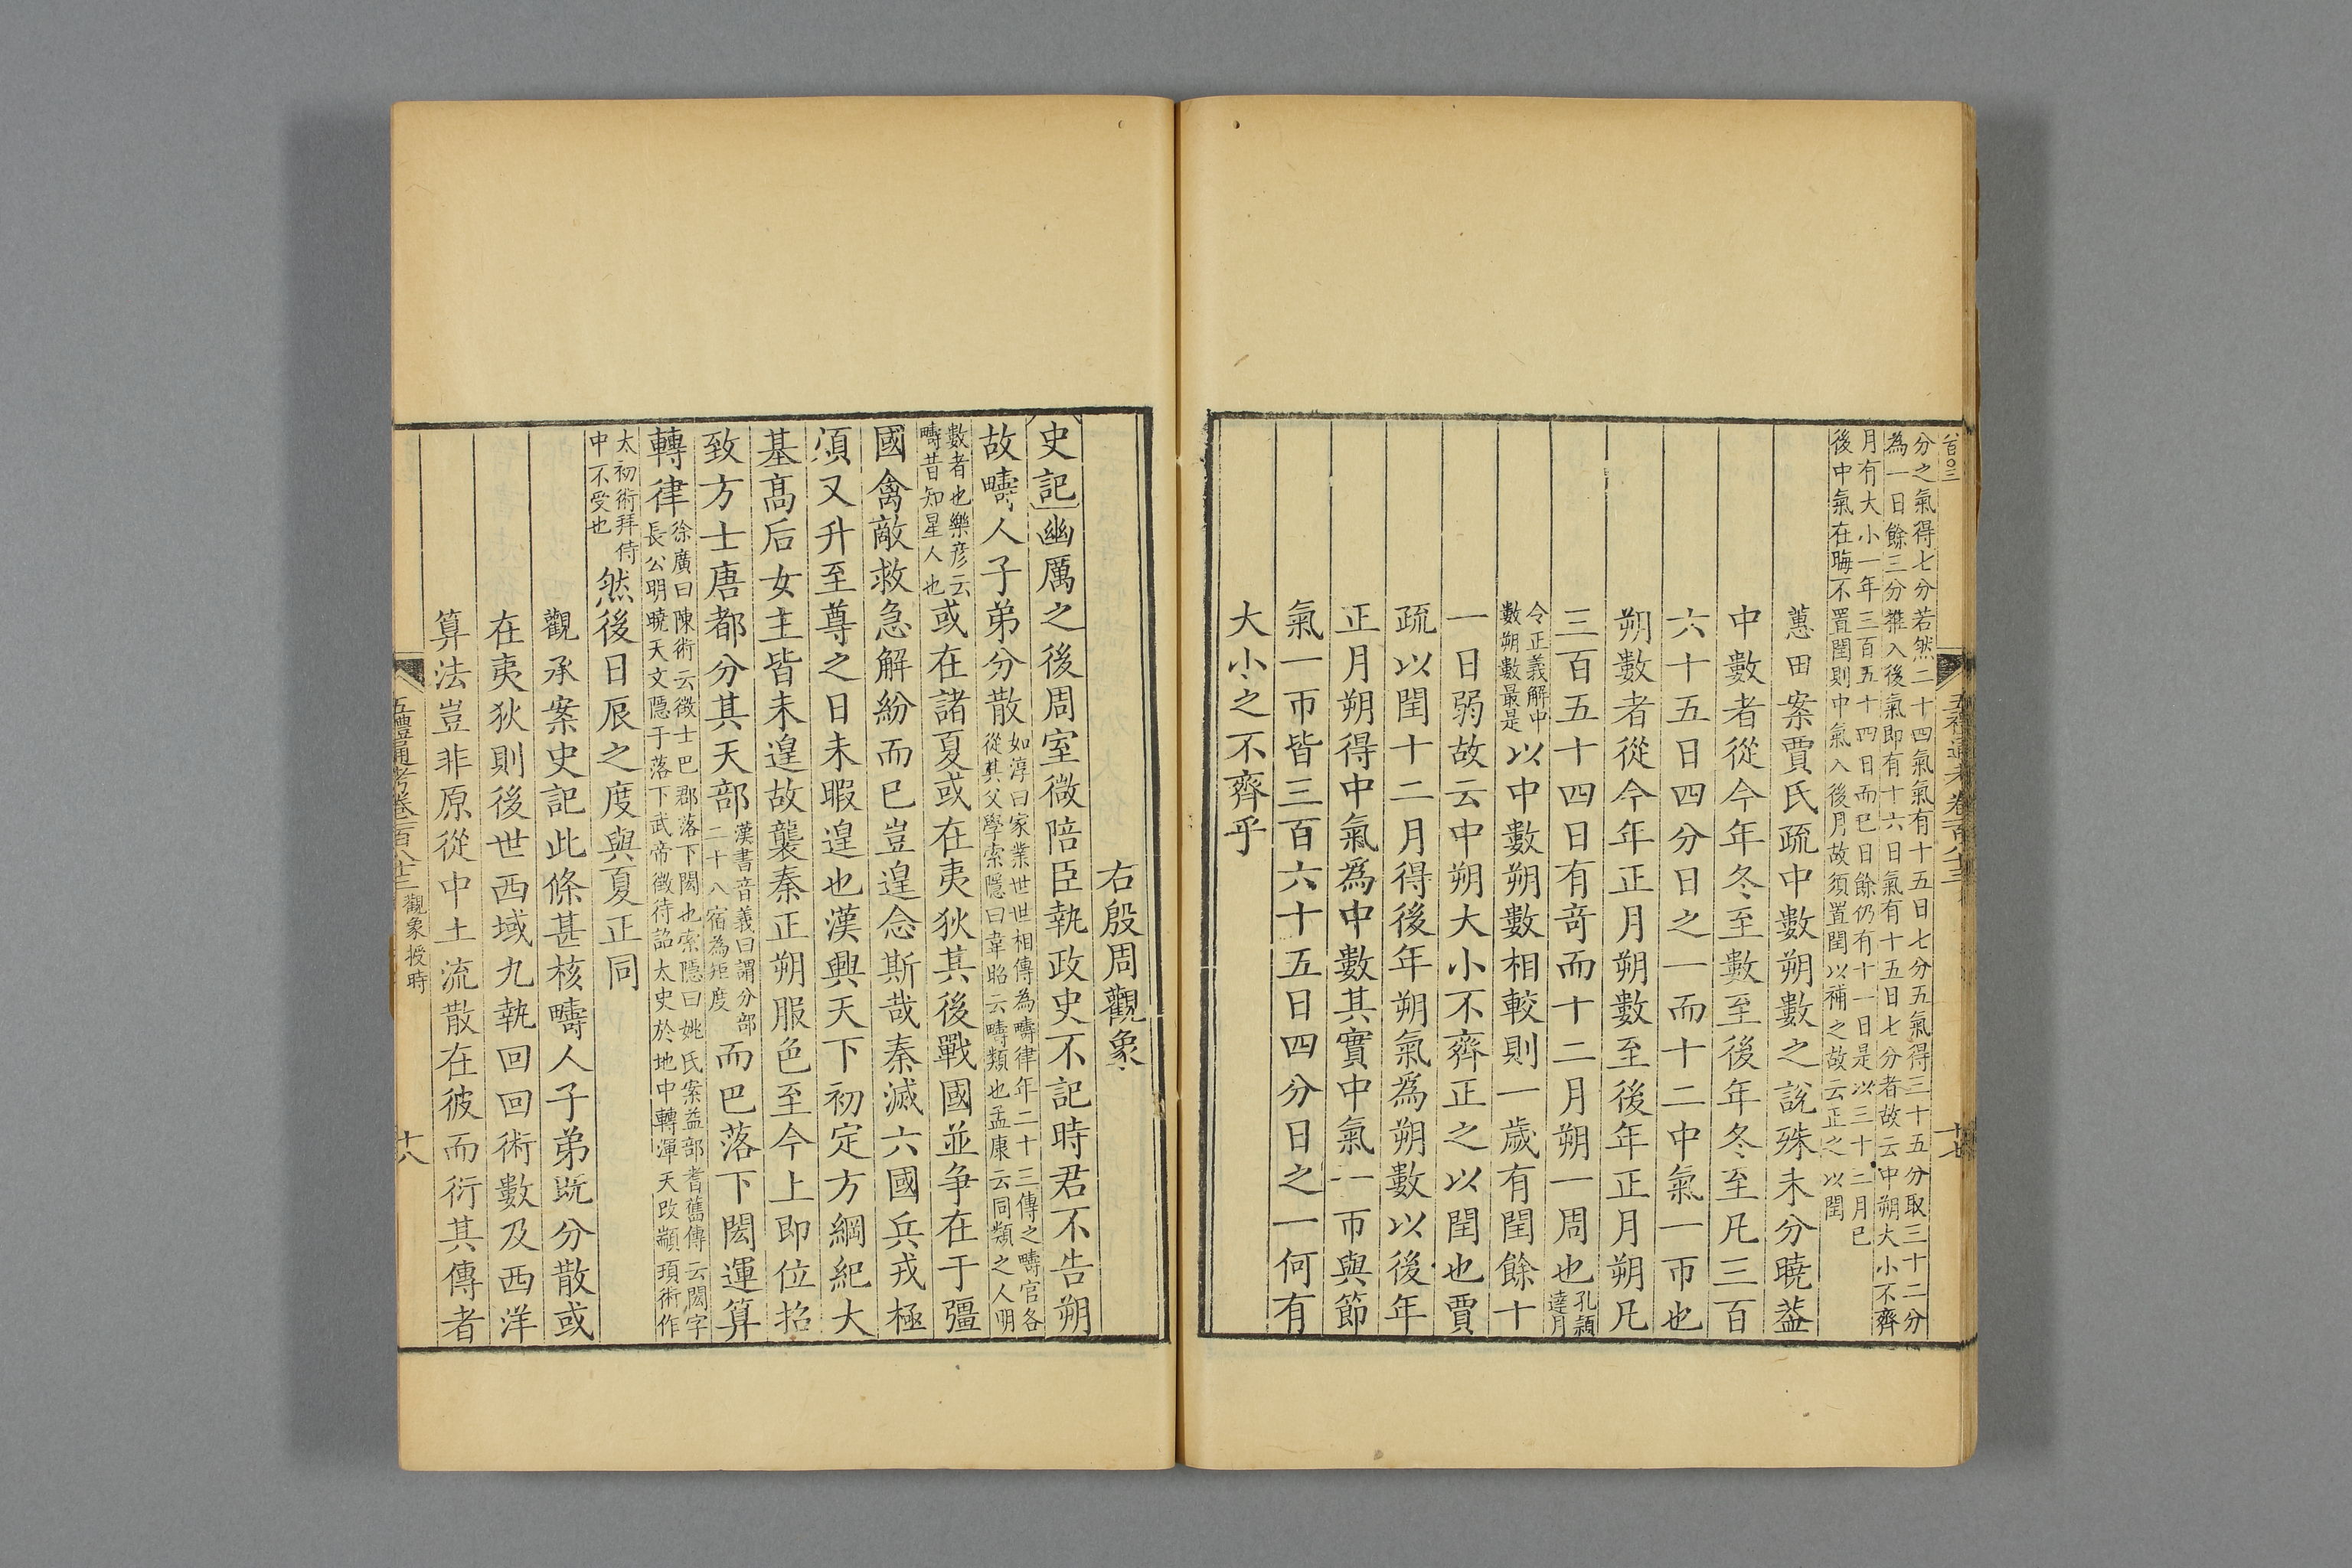 分之氣得七分若然二十四氣氣有十五日七分五氣得三十五分取三十二分
為一日餘三分襍入後氣即有十六日氣有十五日七分者故云中朔大小不齊
月有大小一年三百五十四日而巳日餘仍有十一日是以三十三月巳
後中氣在晦不置閏則中氣入後月故須置閏以補之故云正之以閏
蕙田案賈氏疏中數朔數之說殊未分曉葢
中數者從今年冬至數至後年冬至凡三百
六十五日四分日之一而十二中氣一帀也
朔數者從今年正月朔數至後年正月朔凡
三百五十四日有奇而十二月朔一周也孔穎達月
令正義解中數朔數最是以中數朔數相較則一歲有閏餘十
一日弱故云中朔大小不齊正之以閏也賈
疏以閏十二月得後年朔氣爲朔數以後年
正月朔得中氣爲中數其實中氣一帀與節
氣一帀皆三百六十五日四分日之一何有
大小之不齊乎
右殷周觀象
史記幽厲之後周室微陪臣執政史不記時君不告朔
故疇人子弟分散如淳曰家業世世相傳為疇律年二十三傳之疇官各從其父學索隱曰韋昭云疇類也孟康云同類之人明
數者也樂彥云疇昔知星人也或在諸夏或在夷狄其後戰國並爭在于彊
國禽敵救急解紛而已豈遑念斯哉秦滅六國兵戎極
煩又升至尊之日未暇遑也漢興天下初定方綱紀大
基高后女主皆未遑故襲秦正朔服色至今上即位招
致方士唐都分其天部漢書音義曰謂分部二十八宿為距度而巴落下閎運算
轉律徐廣曰陳術云徵士巴郡落下閎也索隱曰姚氏案益部耆舊傳云閎字長公明曉天文隱于落下武帝徵待詔太史於地中轉渾天改顓頊術作
太初術拜侍中不受也然後日辰之度與夏正同
觀承案史記此條甚核疇人子弟既分散或
在夷狄則後世西域九執回回術數及西洋
算法豈非原從中土流散在彼而衍其傳者
五禮通考卷一百八十三 觀象授時
十八